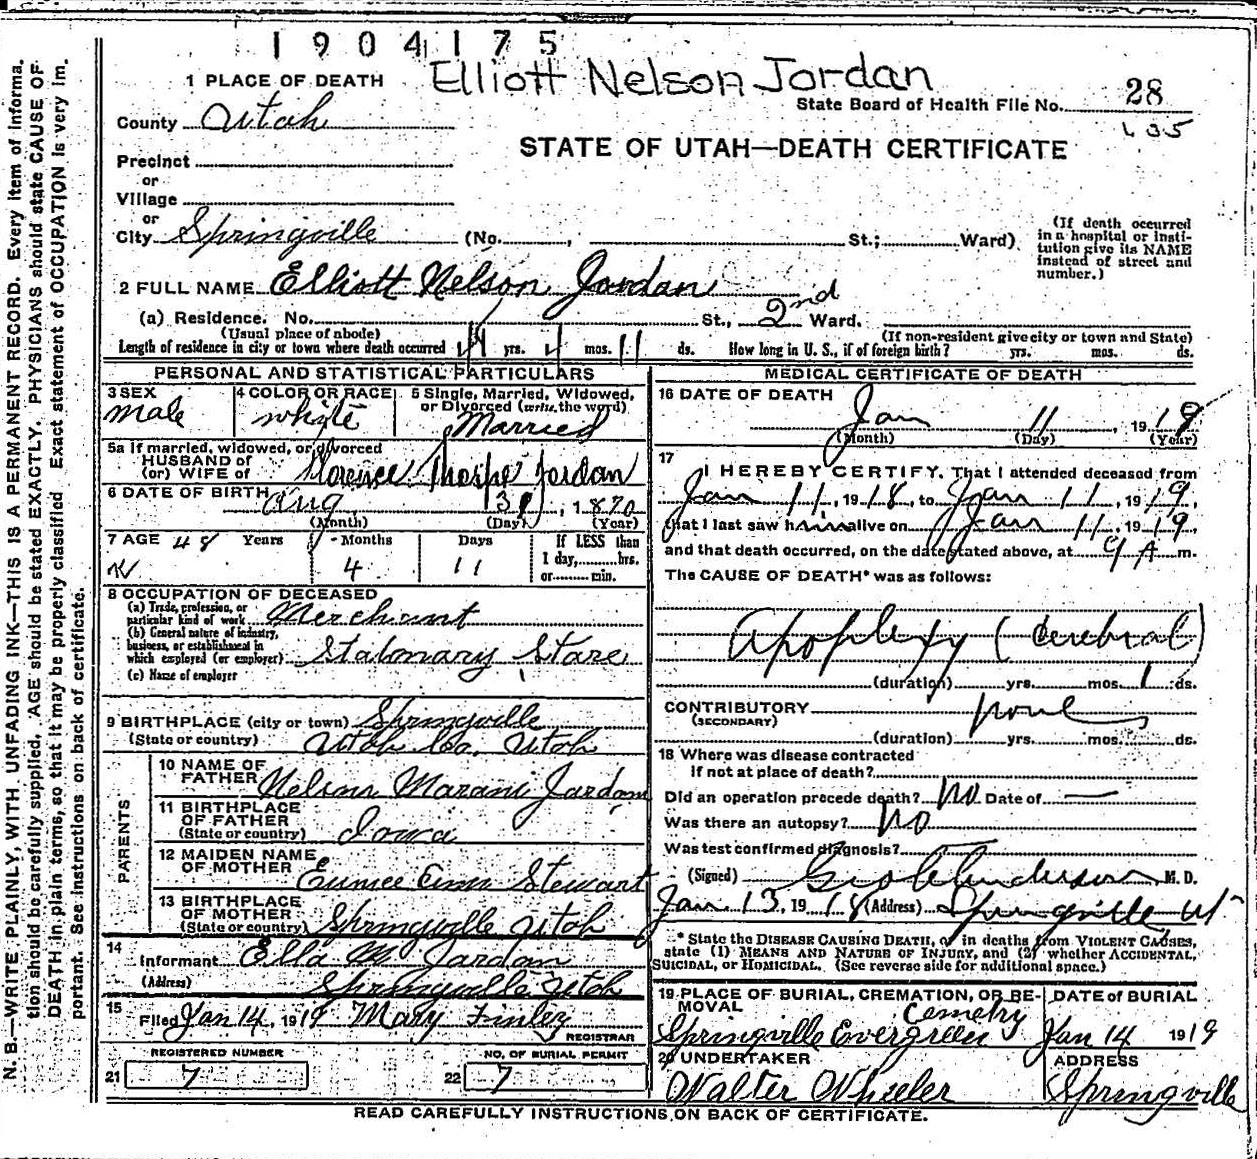 1904175
Elliott Nelson Jordan
1 PLACE OF DEATH
State Board of Health File No. 28
County Utah
STATE OF UTAH—DEATH CERTIFICATE
Precinct
or
Village
or
City Springville (No. , St.; Ward)
(If death occurred in a hospital or institution give its NAME instead of street and number.)
2 FULL NAME Elliott Nelson Jordan
(a) Residence. No. St., 2nd Ward.
(Usual place of abode) (If non-resident give city or town and State)
Length of residence in city or town where death occurred yrs. 4 mos. 11 ds. How long in U. S., if of foreign birth? yrs. mos. ds.
PERSONAL AND STATISTICAL PARTICULARS
3 SEX 4 COLOR OR RACE 5 Single, Married, Widowed, or Divorced (write the word)
male white Married
5a If married, widowed, or divorced
HUSBAND of
(or) WIFE of Florence Thorpe Jordan
6 DATE OF BIRTH Aug 31, 1870
(Month) (Day) (Year)
7 AGE 48 Years Months Days If LESS than
4 11 1 day, hrs.
or min.
8 OCCUPATION OF DECEASED
(a) Trade, profession, or particular kind of work Merchant
(b) General nature of industry, business, or establishment in which employed (or employer) Stationary Store
(c) Name of employer
9 BIRTHPLACE (city or town) Springville
(State or country) Utah Co. Utah
PARENTS
10 NAME OF FATHER Nelson Marani Jordan
11 BIRTHPLACE OF FATHER (State or country) Iowa
12 MAIDEN NAME OF MOTHER Eunice Ann Stewart
13 BIRTHPLACE OF MOTHER (State or country) Springville Utah
14 Informant Ella M Jordan
(Address) Springville Utah
15 Filed Jan 14, 1919 Mary Finley
REGISTRAR
REGISTERED NUMBER NO. OF BURIAL PERMIT
21 7 22 7
MEDICAL CERTIFICATE OF DEATH
16 DATE OF DEATH
Jan 11, 1919
(Month) (Day) (Year)
17 I HEREBY CERTIFY, That I attended deceased from
Jan 11, 1918, to Jan 11, 1919,
that I last saw him alive on Jan 11, 1919
and that death occurred, on the date stated above, at 9 A m.
The CAUSE OF DEATH* was as follows:
Apoplexy (Cerebral)
(duration) yrs. mos. 1 ds.
CONTRIBUTORY none
(SECONDARY)
(duration) yrs. mos. ds.
18 Where was disease contracted
If not at place of death?
Did an operation precede death? No Date of —
Was there an autopsy? No
Was test confirmed diagnosis?
(Signed) Geo Anderson M. D.
Jan 13, 1918 (Address) Springville Ut
* State the DISEASE CAUSING DEATH, or in deaths from VIOLENT CAUSES,
state (1) MEANS AND NATURE OF INJURY, and (2) whether ACCIDENTAL,
SUICIDAL, or HOMICIDAL. (See reverse side for additional space.)
19 PLACE OF BURIAL, CREMATION, OR REMOVAL DATE of BURIAL
Springville Evergreen Cemetry Jan 14 1919
20 UNDERTAKER ADDRESS
Walter Wheeler Springville
READ CAREFULLY INSTRUCTIONS ON BACK OF CERTIFICATE.
N. B.—WRITE PLAINLY, WITH UNFADING INK—THIS IS A PERMANENT RECORD. Every item of information should be carefully supplied, AGE should be stated EXACTLY. PHYSICIANS should state CAUSE OF DEATH in plain terms, so that it may be properly classified. Exact statement of OCCUPATION is very important. See instructions on back of certificate.